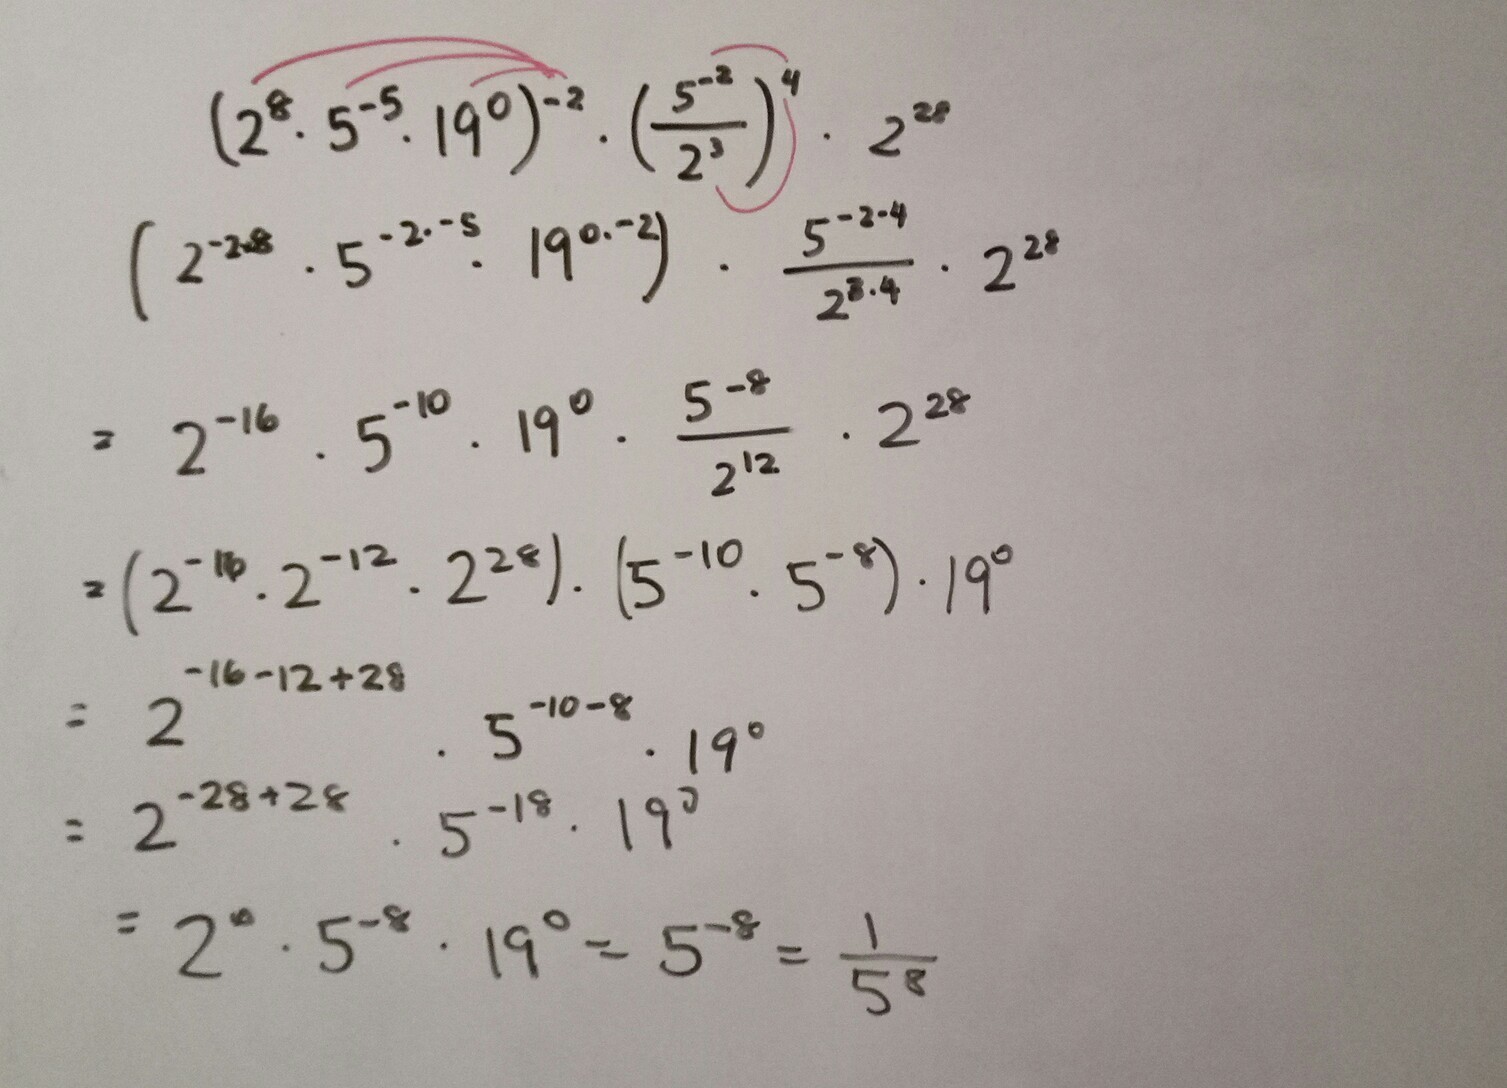 (2⁸ · 5⁻⁵ · 19⁰)⁻² · (5⁻²/2³)⁴ · 2²⁸
(2⁻²·⁸ · 5⁻²·⁻⁵ · 19⁰·⁻²) · 5⁻²·⁴/2³·⁴ · 2²⁸
= 2⁻¹⁶ · 5⁻¹⁰ · 19⁰ · 5⁻⁸/2¹² · 2²⁸
= (2⁻¹⁶ · 2⁻¹² · 2²⁸) · (5⁻¹⁰ · 5⁻⁸) · 19⁰
= 2⁻¹⁶⁻¹²⁺²⁸ · 5⁻¹⁰⁻⁸ · 19⁰
= 2⁻²⁸⁺²⁸ · 5⁻¹⁸ · 19⁰
= 2⁰ · 5⁻⁸ · 19⁰ = 5⁻⁸ = 1/5⁸